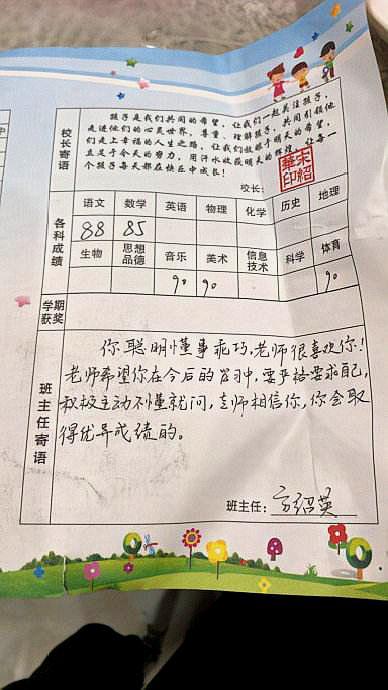 校长寄语
孩子是我们共同的希望，让我们一起关注孩子，
走进他们的心灵世界，尊重、理解孩子，共同引领他
们走上幸福的人生之路，让我们放眼于明天的希望，
立足于今天的努力，用汗水收获明天的辉煌，让每一
个孩子每天都在快乐中成长！
校长：
各科成绩
语文 数学 英语 物理 化学 历史 地理
88 85
生物 思想品德 音乐 美术 信息技术 科学 体育
90 90 90
学期获奖
班主任寄语
你聪明懂事乖巧，老师很喜欢你！
老师希望你在今后的学习中，要严格要求自己，
积极主动不懂就问，老师相信你，你会取
得优异成绩的。
班主任：